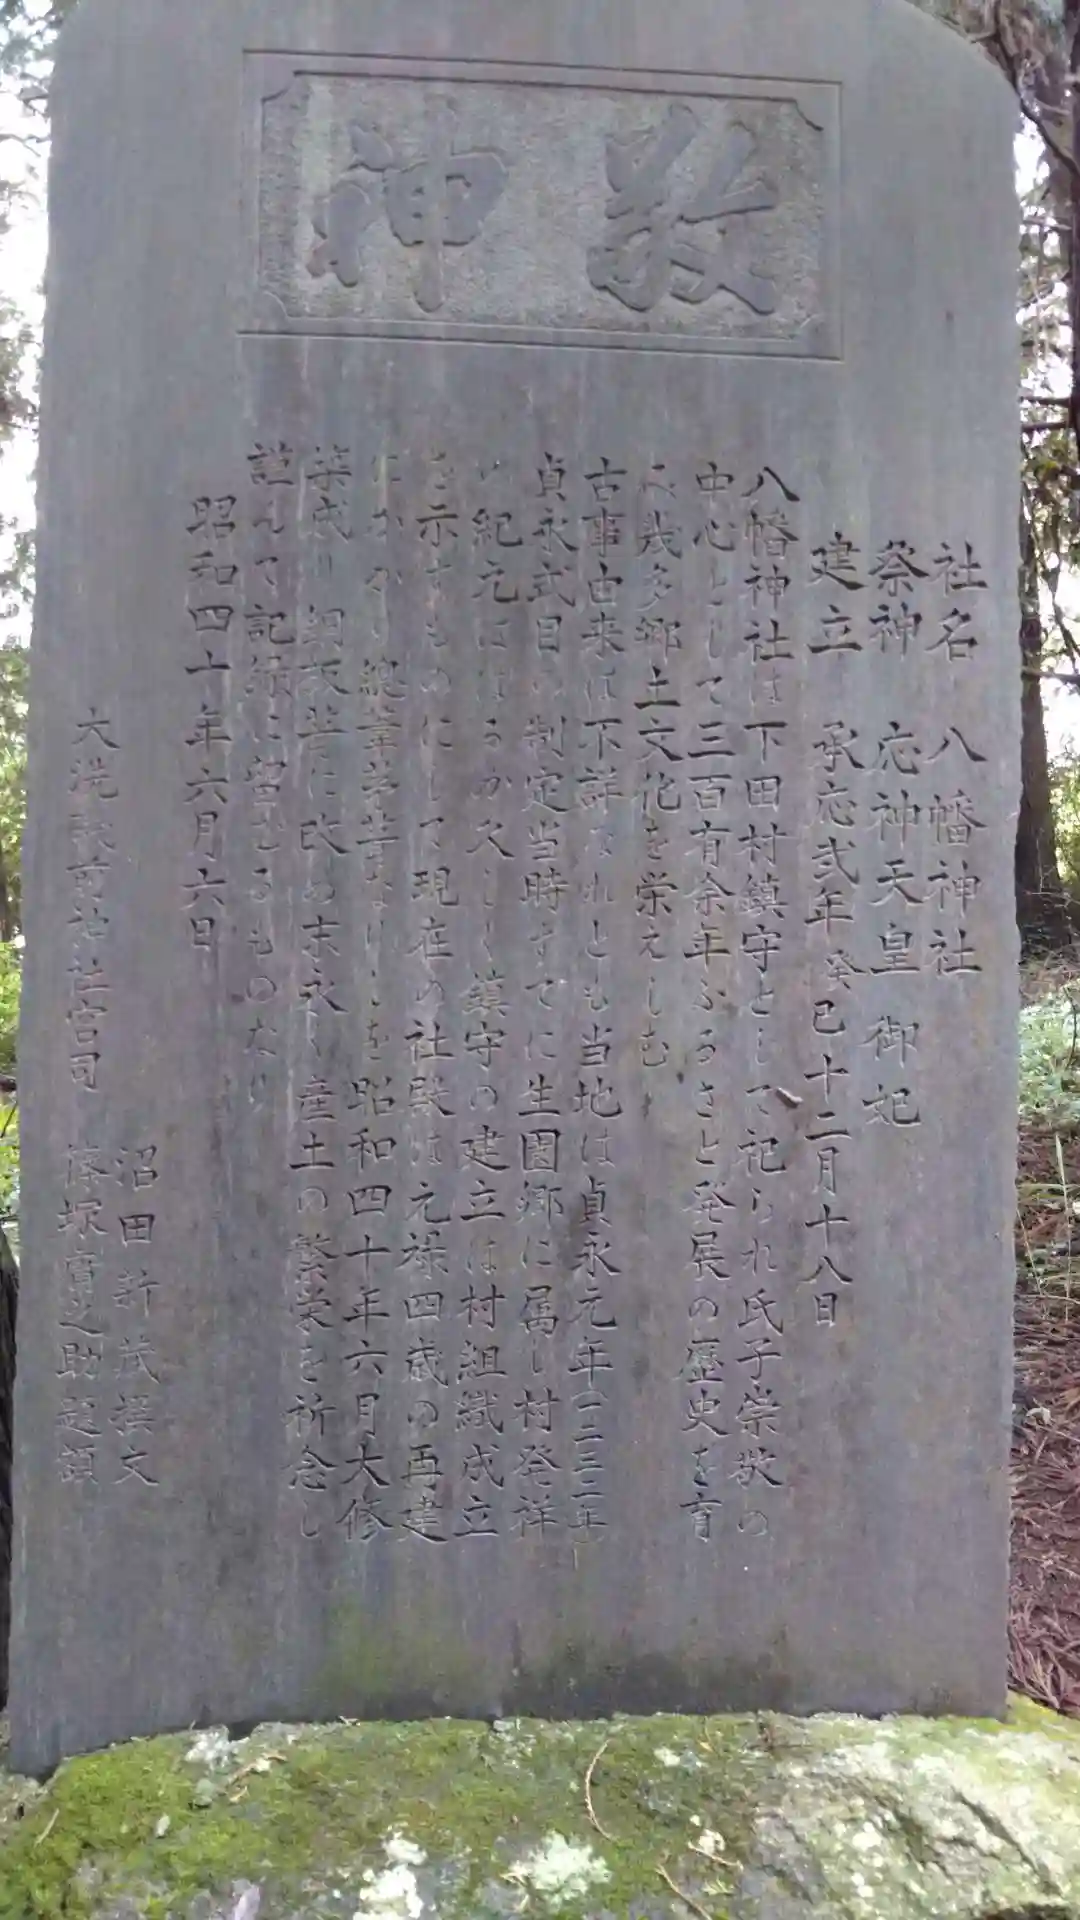 敬神
社名 八幡神社
祭神 応神天皇 御妃
建立 承応弐年癸巳十二月十八日
八幡神社は下田村鎮守として祀られ氏子崇敬の
中心として三百有余年ふるさと発展の歴史を育
み幾多郷土文化を栄えしむ
古事由来は不詳なれとも当地は貞永元年(一二三二年)
貞永式目の制定当時すでに生園郷に属し村発祥
の紀元ははるか久しく鎮守の建立は村組織成立
を示すものにして現在の社殿は元禄四歳の再建
にかかり総葦茅葺なりしを昭和四十年六月大修
築成り銅板葺に改め末永く産土の繁栄を祈念し
謹んで記録に留むるものなり
昭和四十年六月六日
沼田新茂撰文
大洗磯前神社宮司 篠塚寛之助題額